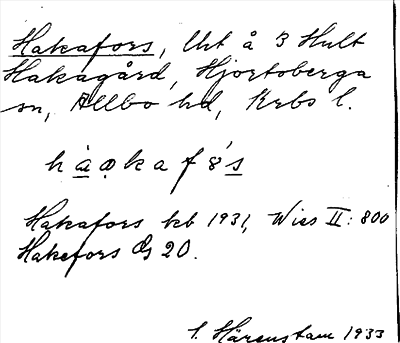 Hakafors, lht å 3 Hult
Hakagård, Hjortsberga
sn, Allbo hd, Krbs l.
h à ꬱ k a f 8́ s
Hakafors kb 1931, Wies II: 800
Hakefors Gs 20.
S. Härenstam 1933